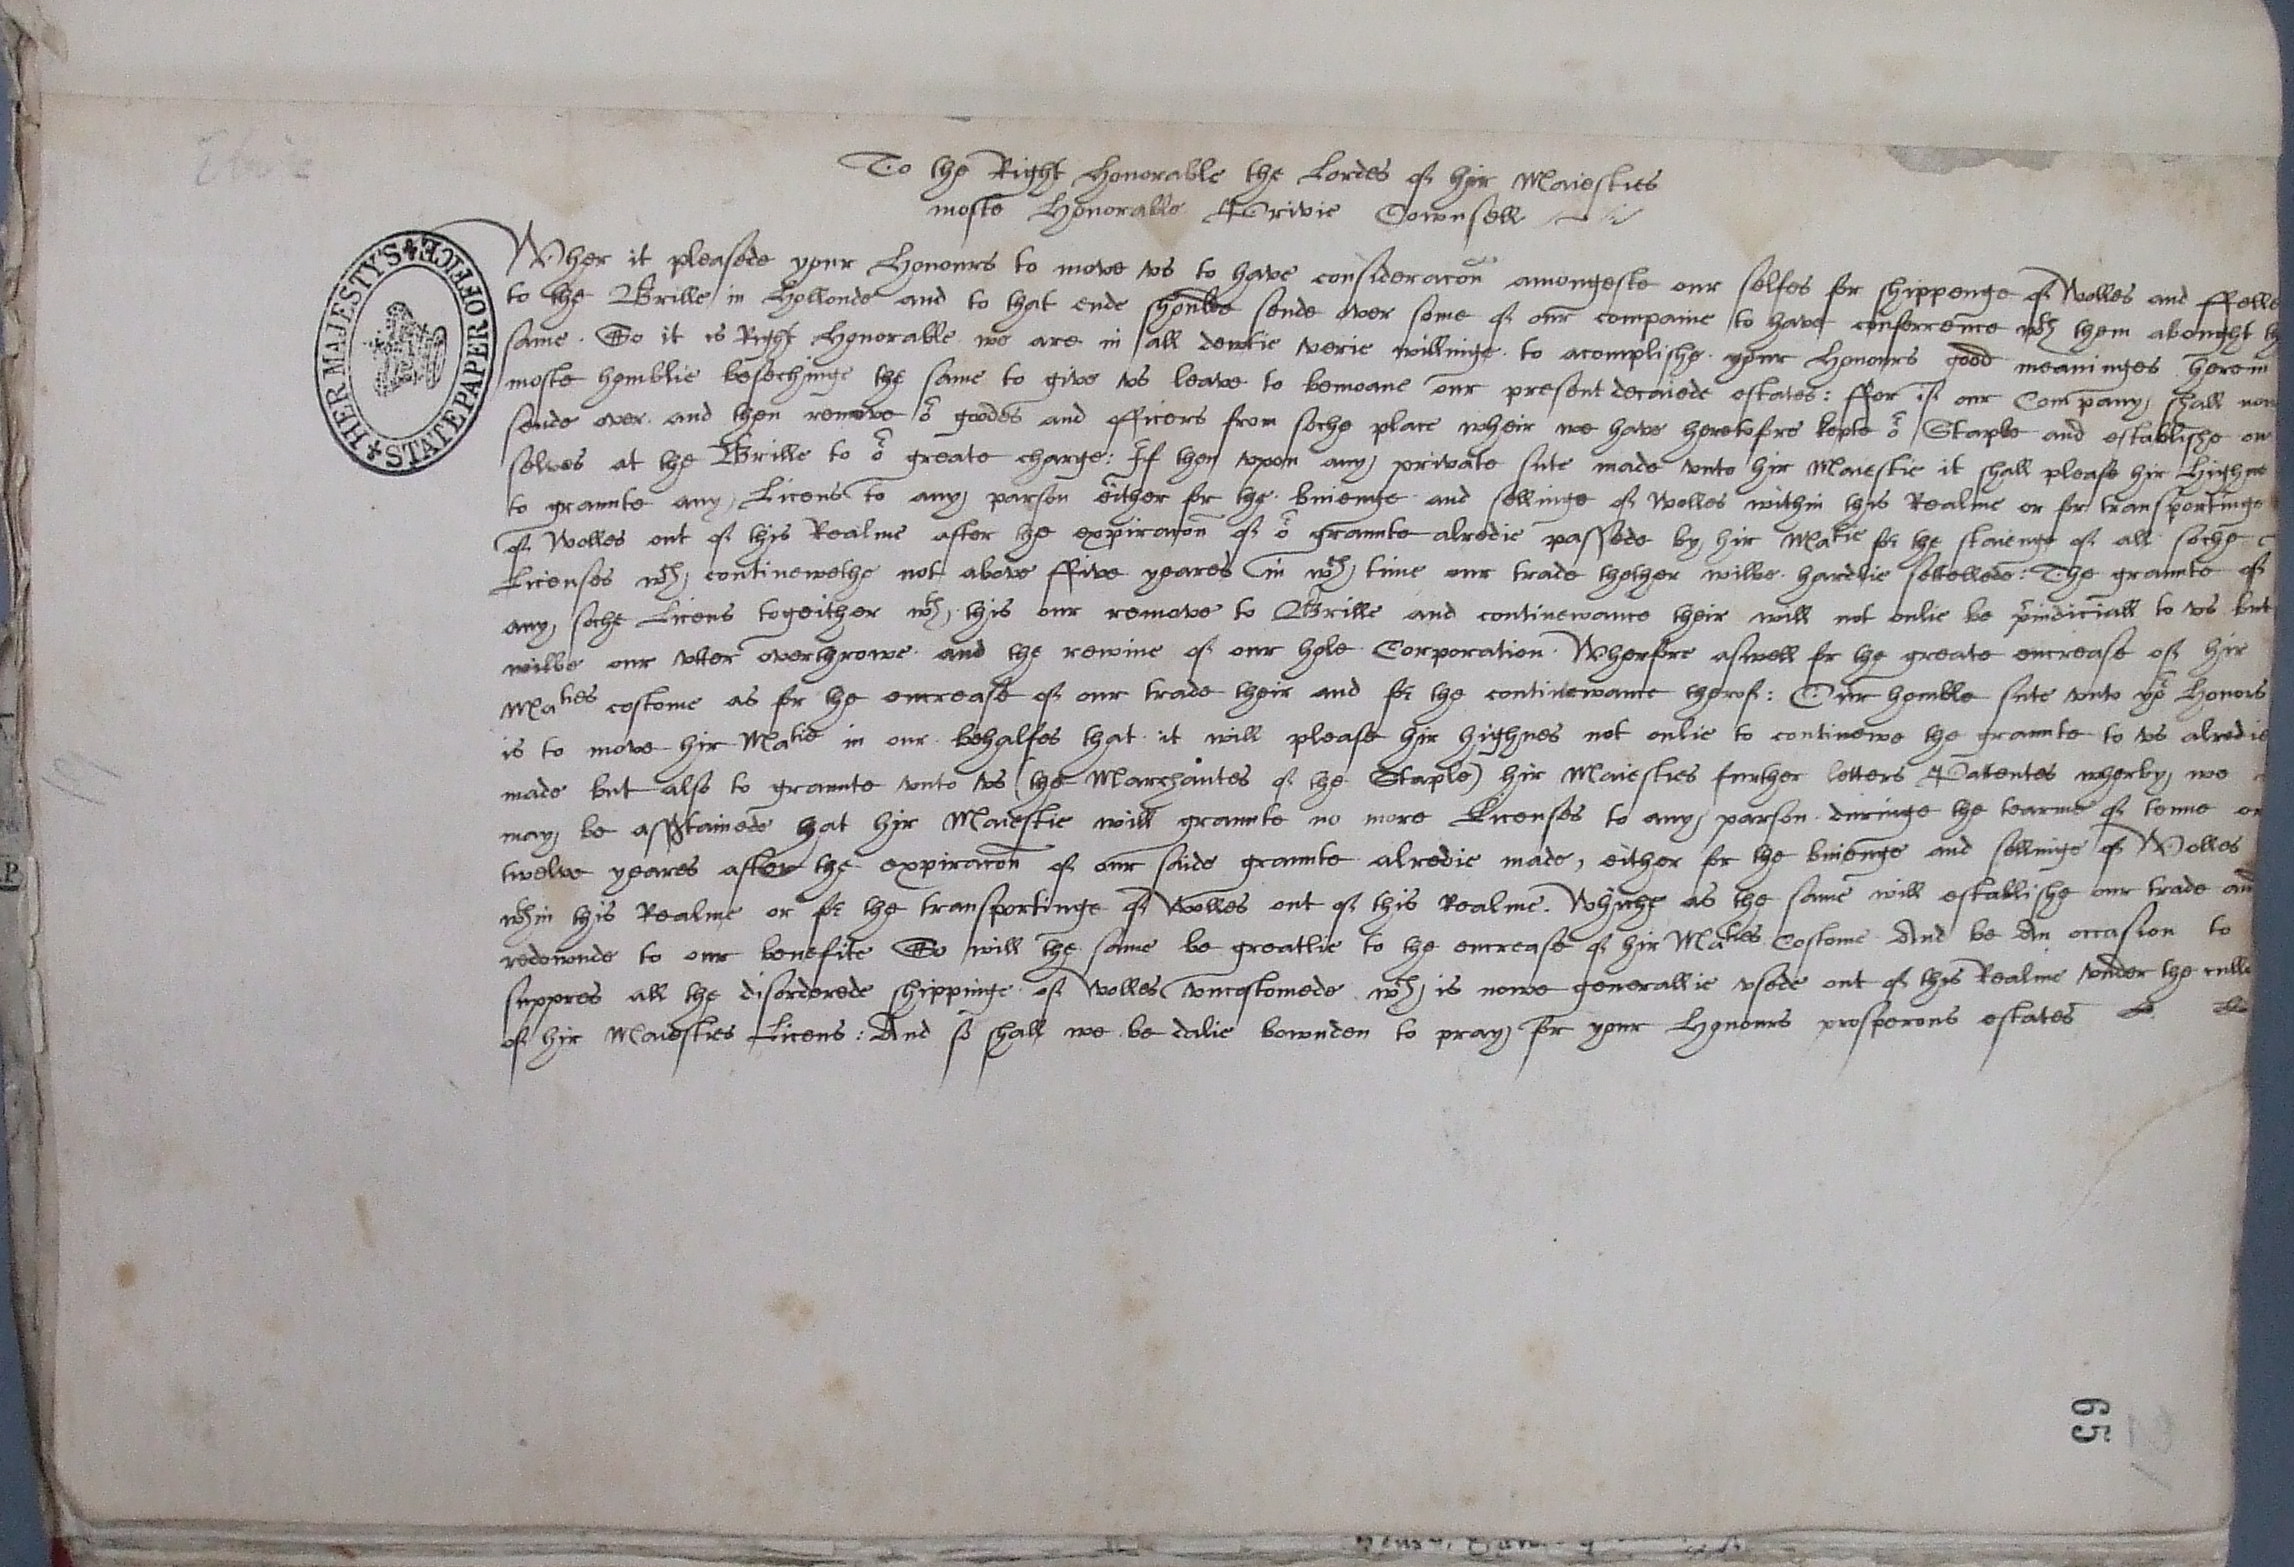 To the Right Honorable the Lordes of hir Maiesties
moste Honorable Privie Cownsell
Wher it pleasede your Honours to move vs to have consideracon amongeste our selfes for shippenge of Wolles and ffelle
to the Brille in Hollonde and to that ende shoulde sende over some of our companie to have conferrence wth them abought th
same. So it is Right Honorable we are in all dewtie verie willinge to acomplishe your Honours good meaninges herein
moste homblie besechinge the same to give vs leave to bemoane our present decaiede estates: ffor if our Company shall now
sende over and then remove or goodes and officers from soche place wheir we have heretofore kepte or Staple and establishe ow
selves at the Brille to or greate charge: If then vpon any private sute made vnto hir Maiestie it shall please hir Highnes
to graunte any Licens to any parson either for the buienge and sellinge of Wolles within this Realme or for transportinge
of Wolles out of this Realme after the expiracon of or graunte alredie passede by hir Matie for the staienge of all soche
Licenses wch continewethe not above ffive yeares in wch time our trade thether wilbe hardlie settellede: The graunte of
any soche Licens togeither wth this our remove to Brille and continewance their will not onlie be preiudiciall to vs but
wilbe our vtter overthrowe and the rewine of our hole Corporation. Wherfore aswell for the greate encrease of hir
Maties costome as for the encrease of our trade their and for the continewance therof: Our homble sute vnto yor Honors
is to move hir Matie in our behalfes that it will please hir highnes not onlie to continewe the graunte to vs alredie
made but also to graunte vnto vs (the Marchantes of the Staple) hir Maiesties further letters Patentes wherby we
may be assertainede that hir Maiestie will graunte no more Licenses to any parson duringe the tearme of tenne or
twelve yeares after the expiracon of our saide graunte alredie made, either for the buienge and sellinge of Wolles
wthin this Realme or for the transportinge of Wolles out of this Realme. Whiche as the same will establishe our trade and
redownde to our benefite So will the same be greatlie to the encrease of hir Maties Costome And be An occasion to
suppres all the disorderede shippinge of Wolles vncostomede wch is nowe generallie vsede out of this Realme vnder the culle
of hir Maiesties Licens: And so shall we be dalie bownden to pray for your Honours prosperous estates
HER MAJESTY'S STATE PAPER OFFICE
65